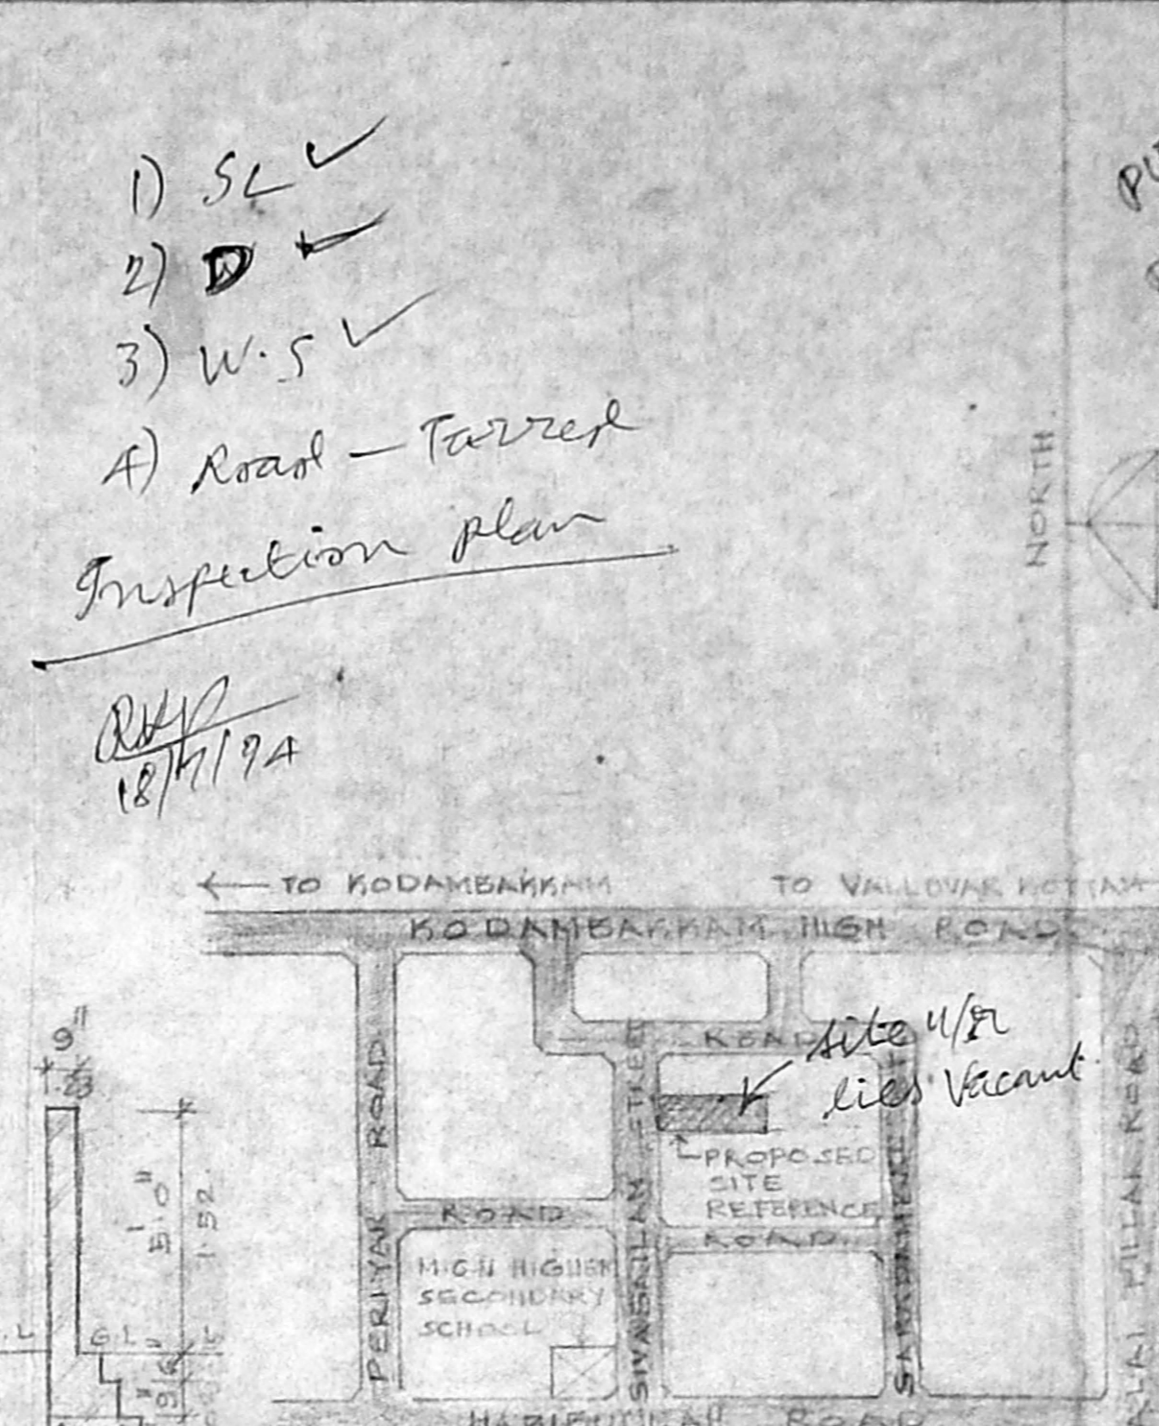 1) SL ✓
2) D ✓
3) W.S ✓
4) Road — Tarred
Inspection plan
18/7/94
NORTH
← TO KODAMBAKKAM
TO VALLOVAR KOTTAM
KODAMBAKKAM HIGH ROAD
site u/r
lies Vacant
ROAD
PROPOSED
SITE
REFERENCE
ROAD
ROAD
PERIYAR ROAD
SIVASAILAM STREET
M.G.N HIGHER
SECONDARY
SCHOOL
PILLAI ROAD
ROAD
9"
.23
5'0"
1.52
G.L